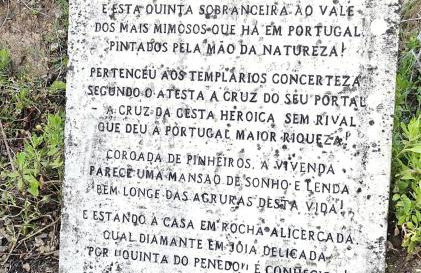 É ESTA QUINTA SOBRANCEIRA AO VALE
DOS MAIS MIMOSOS QUE HÁ EM PORTUGAL
PINTADOS PELA MÃO DA NATUREZA!
PERTENCEU AOS TEMPLÁRIOS CONCERTEZA
SEGUNDO O ATESTA A CRUZ DO SEU PORTAL
- A CRUZ DA GESTA HERÓICA SEM RIVAL
QUE DEU A PORTUGAL MAIOR RIQUEZA!
COROADA DE PINHEIROS, A VIVENDA
PARECE UMA MANSÃO DE SONHO E LENDA
BEM LONGE DAS AGRURAS DESTA VIDA!
E ESTANDO A CASA EM ROCHA ALICERÇADA
QUAL DIAMANTE EM JÓIA DELICADA
POR "QUINTA DO PENEDO" É